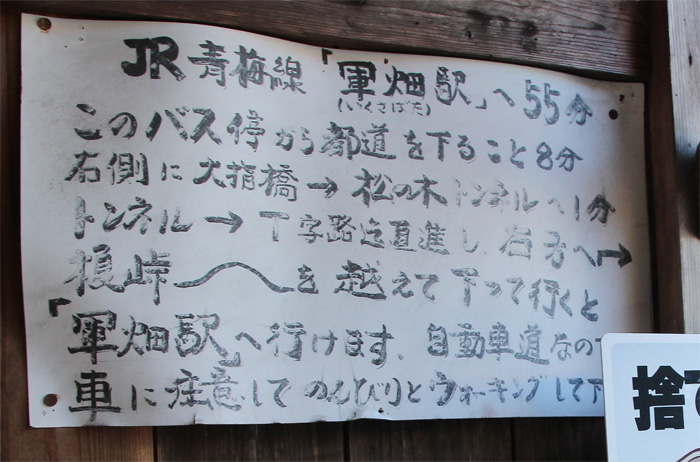 JR青梅線「軍畑駅」へ55分
(いくさばた)
このバス停から都道を下ること8分
右側に大指橋→松の木トンネルへ1分
トンネル→丁字路迄直進し、右方へ→
榎峠を越えて下って行くと
「軍畑駅」へ行けます、自動車道なので
車に注意してのんびりとウォーキングして下
捨て